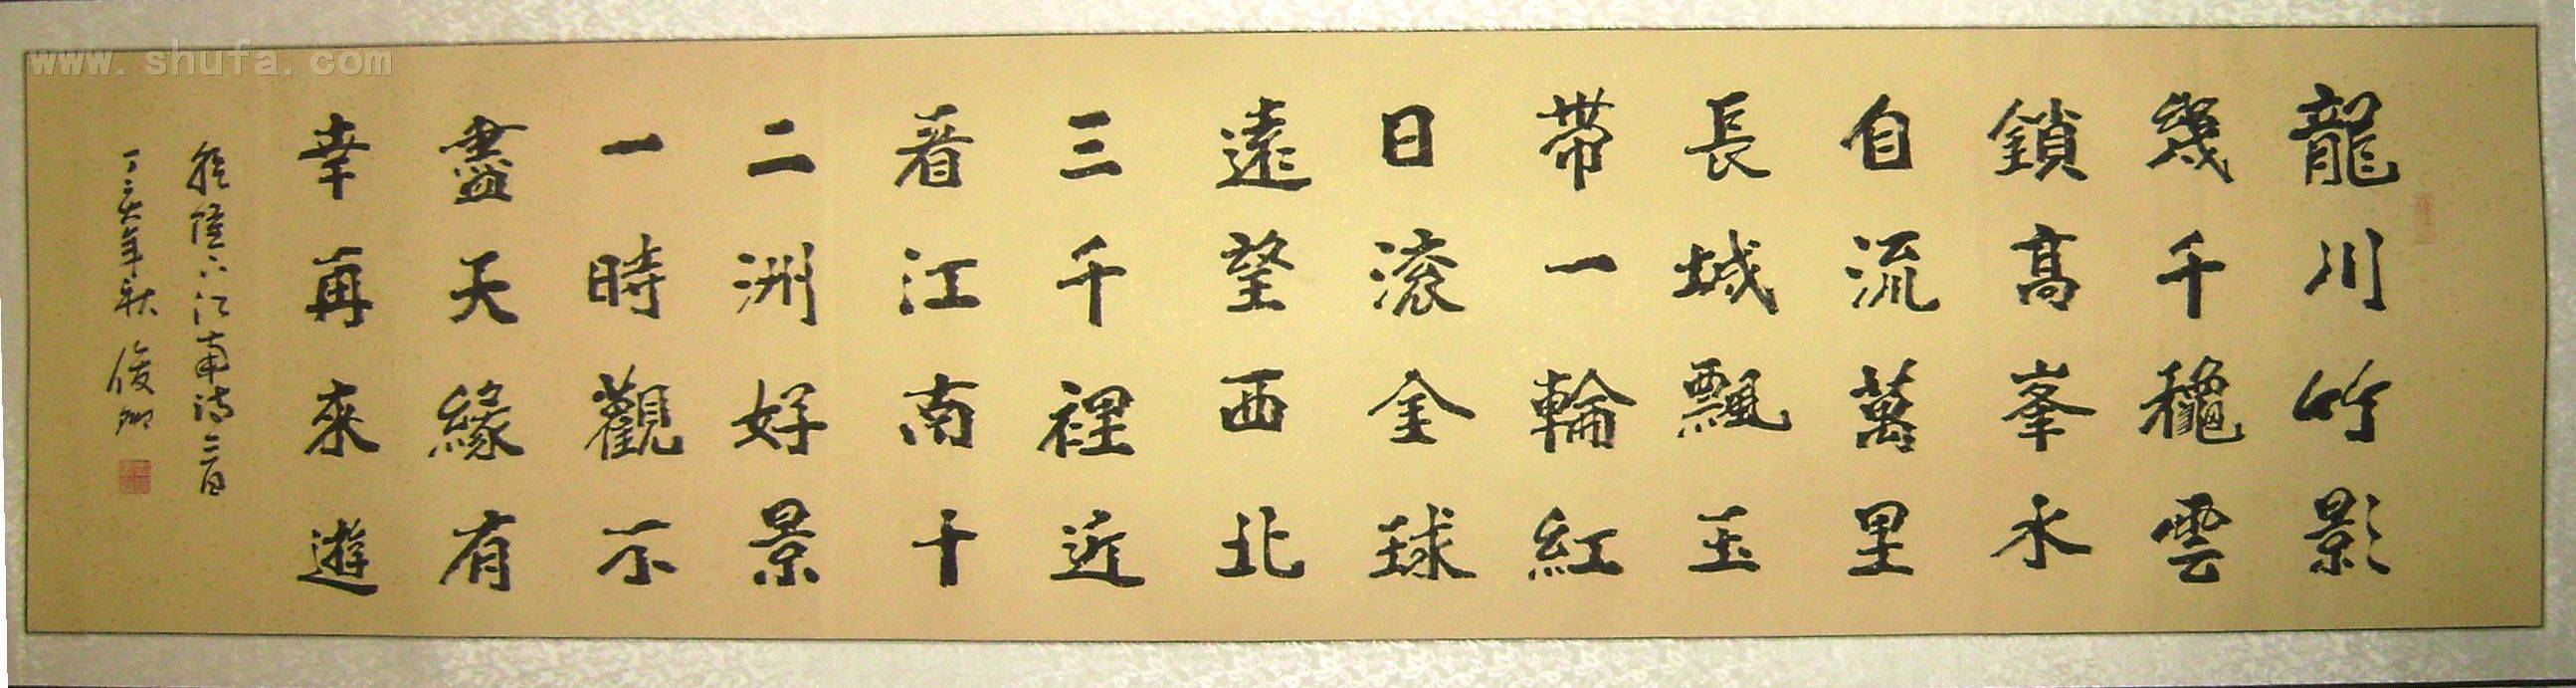 龍川竹影
幾千穐雲
鎖高峯水
自流萬里
長城飄玉
帶一輪紅
日滚金球
遠望西北
三千裡近
看江南十
二洲好景
一時觀不
盡天緣有
幸再來遊
乾隆下江南詩二首
丁亥年秋 俊卿
www.shufa.com